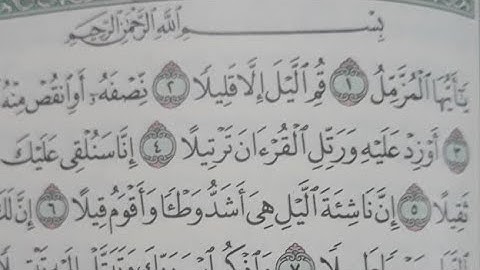 بِسْمِ ٱللَّهِ ٱلرَّحْمَٰنِ ٱلرَّحِيمِ
يَٰٓأَيُّهَا ٱلْمُزَّمِّلُ ١ قُمِ ٱلَّيْلَ إِلَّا قَلِيلًا ٢ نِّصْفَهُۥٓ أَوِ ٱنقُصْ مِنْهُ
٣ أَوْ زِدْ عَلَيْهِ وَرَتِّلِ ٱلْقُرْءَانَ تَرْتِيلًا ٤ إِنَّا سَنُلْقِى عَلَيْكَ
ثَقِيلًا ٥ إِنَّ نَاشِئَةَ ٱلَّيْلِ هِىَ أَشَدُّ وَطْـًٔا وَأَقْوَمُ قِيلًا ٦ إِنَّ لَكَ
٧ وَٱذْكُرِ